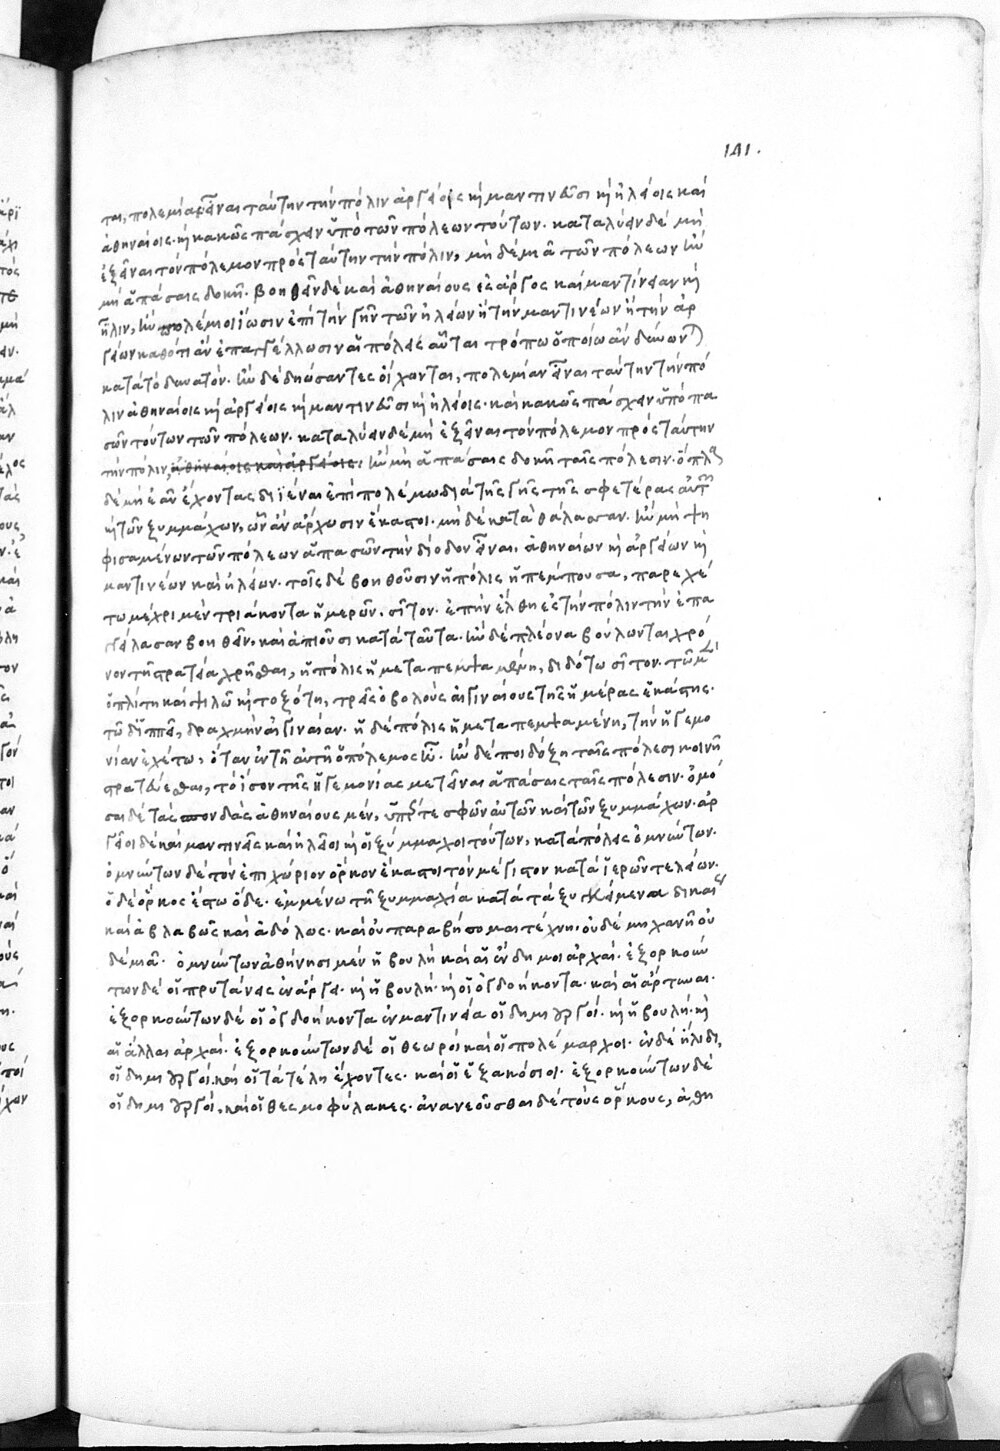 141.
ται, πολεμίαν εἶναι ταύτην τὴν πόλιν ἀργείοις κὴ μαντινεῦσι κὴ ἠλείοις καὶ
ἀθηναίοις· κὴ κακῶς πάσχειν ὑπὸ τῶν πόλεων τούτων. καταλύειν δὲ μὴ
ἐξεῖναι τὸν πόλεμον πρὸς ταύτην τὴν πόλιν, μὴδέμιᾶ τῶν πόλεων ἢν
μὴ ἁπάσαις δοκῆ. βοηθεῖν δὲ καὶ ἀθηναίους ἐς ἄργος καὶ μαντίνειαν κὴ
ἦλιν, ἢν πολέμιοι ἴωσιν ἐπὶ τὴν γῆν τῶν ἠλείων ἢ τὴν μαντινέων ἢ τὴν ἀρ
γείων καθότι ἂν ἐπαγγέλλωσιν αἱ πόλεις αὗται τρόπω ὁποίω ἂν δύνων)
κατὰ τὸ δυνατόν. ἢν δὲ δηώσαντες οἴχωνται, πολεμίαν εἶναι ταύτην τὴν πό
λιν ἀθηναίοις κὴ ἀργείοις κὴ μαντινεῦσι κὴ ἠλείοις· καὶ κακῶς πάσχειν ὑπὸ πα
σῶν τούτων τῶν πόλεων. καταλύειν δὲ μὴ ἐξεῖναι τὸν πόλεμον πρὸς ταύτην
τὴν πόλιν, ἀθηναίοις καὶ ἀργείοις. ἢν μὴ ἁπάσαις δοκῆ ταῖς πόλεσιν. ὅπλα
δὲ μὴ ἐᾶν ἔχοντας διϊέναι ἐπὶ πολέμω διὰ τῆς γῆς τῆς σφετέρας αὐτῶν
κὴ τῶν ξυμμάχων, ὧν ἂν ἄρχωσιν ἕκαστοι. μὴ δὲ κατὰ θάλασσαν. ἢν μὴ ψη
φισαμένων τῶν πόλεων ἁπασῶν τὴν δίοδον εἶναι, ἀθηναίων κὴ ἀργείων κὴ
μαντινέων καὶ ἠλείων. τοῖς δὲ βοηθοῦσιν ἡ πόλις ἡ πέμπουσα, παρεχέ
τω μέχρι μὲν τριάκοντα ἡμερῶν, σῖτον. ἐπὴν ἔλθη ἐς τὴν πόλιν τὴν ἐπα
γγείλασαν βοηθεῖν, καὶ ἀπιοῦσι κατὰ ταῦτα. ἢν δὲ πλέονα βούλωνται χρό
νον τῆ στρατεία χρῆσθαι, ἡ πόλις ἡ μεταπεμψαμένη, διδότω σῖτον. τῶ μὲν
ὁπλίτη καὶ ψιλῶ κὴ τοξότη, τρεῖς ὀβολοὺς αἰγιναίους τῆς ἡμέρας ἑκάστης.
τῶ δ' ἱππεῖ, δραχμὴν αἰγιναίαν. ἡ δὲ πόλις ἡ μεταπεμψαμένη, τὴν ἡγεμο
νίαν ἐχέτω, ὅταν ἐν τῆ αὐτῆ ὁ πόλεμος ἦ. ἢν δέ ποι δόξη ταῖς πόλεσι κοινῆ
στρατεύεσθαι, τὸ ἴσον τῆς ἡγεμονίας μετεῖναι ἁπάσαις ταῖς πόλεσιν. ὀμό
σαι δὲ τὰς σπονδὰς ἀθηναίους μὲν, ὑπέρ τε σφῶν αὐτῶν καὶ τῶν ξυμμάχων. ἀρ
γεῖοι δὲ καὶ μαντινεῖς καὶ ἠλεῖοι κὴ οἱ ξύμμαχοι τούτων, κατὰ πόλεις ὀμνύντων.
ὀμνύντων δὲ τὸν ἐπιχώριον ὅρκον ἕκαστοι τὸν μέγιστον κατὰ ἱερῶν τελείων.
ὁ δὲ ὅρκος ἔστω ὅδε. ἐμμένω τῆ ξυμμαχία κατὰ τὰ ξυγκείμενα δικαίως
καὶ ἀβλαβῶς καὶ ἀδόλως. καὶ οὐ παραβήσομαι τέχνη, οὐδὲ μηχανῆ οὐ
δέμιᾶ. ὀμνύντων ἀθήνησι μὲν ἡ βουλὴ καὶ αἱ ἔνδημοι ἀρχαί. ἐξορκούν
των δὲ οἱ πρυτάνεις ἐν ἄργει. κὴ ἡ βουλή. κὴ οἱ ὀγδοήκοντα. καὶ αἱ ἀρτυναι.
ἐξορκούντων δὲ οἱ ὀγδοήκοντα ἐν μαντινεία οἱ δημιουργοί. κὴ ἡ βουλή. κὴ
αἱ ἄλλαι ἀρχαί. ἐξορκούντων δὲ οἱ θεωροὶ καὶ οἱ πολέμαρχοι. ἐν δὲ ἤλιδι,
οἱ δημιουργοί. καὶ οἱ τὰ τέλη ἔχοντες. καὶ οἱ ἑξακόσιοι. ἐξορκούντων δὲ
οἱ δημιουργοί, καὶ οἱ θεσμοφύλακες. ἀνανεοῦσθαι δὲ τοὺς ὅρκους, ἀθη